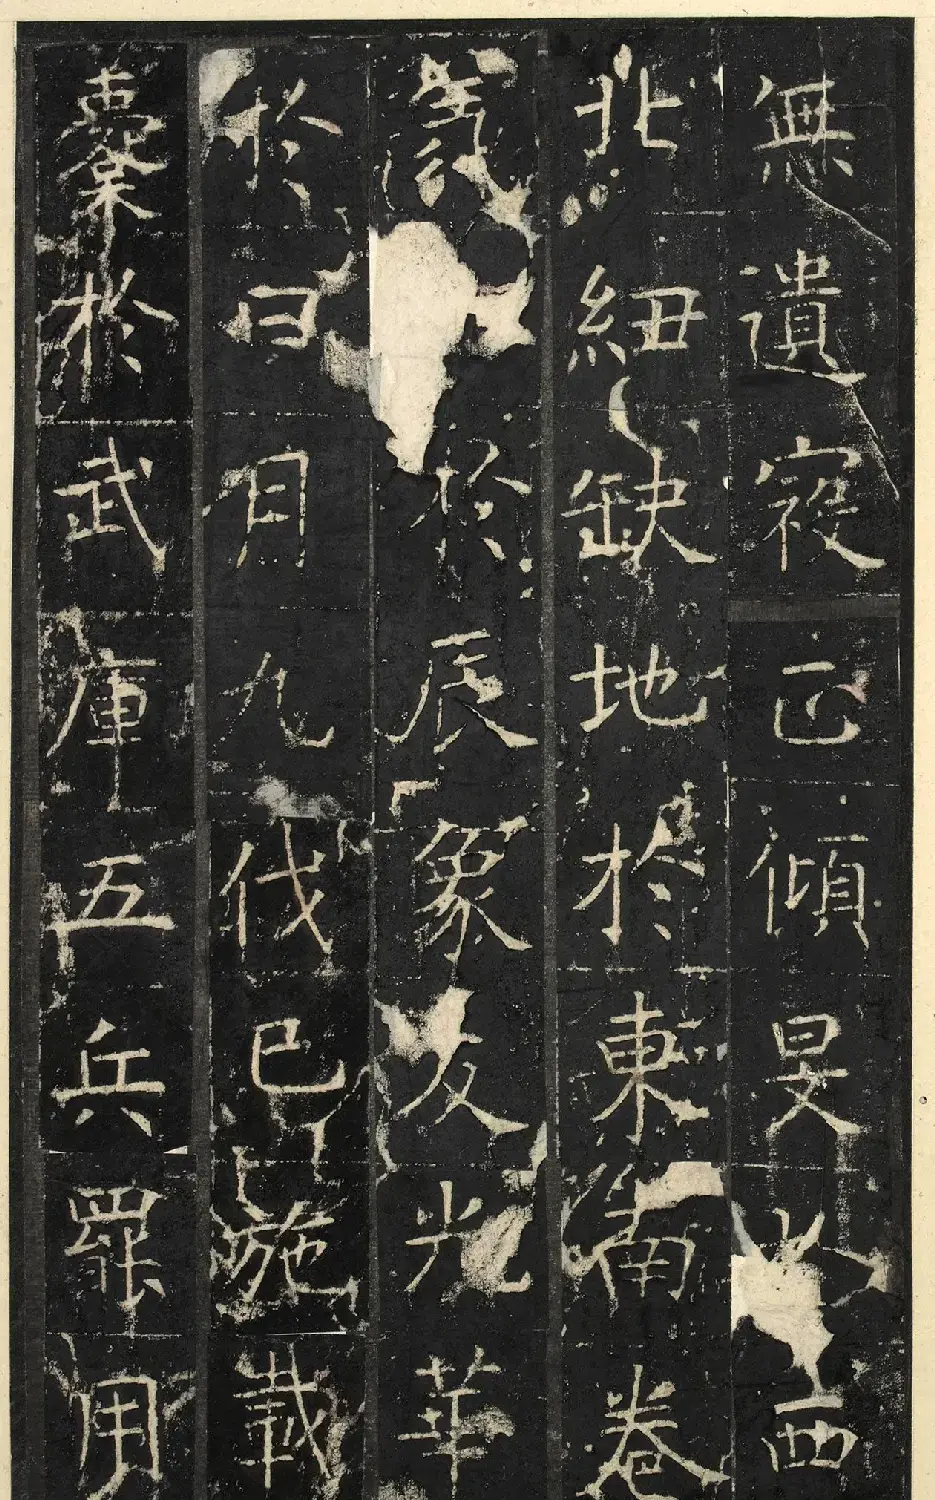 無遺寇正傾旻西
北紐缺地於東南卷
氛於辰象反光華
於日月九伐已施載
櫜於武庫五兵罷用